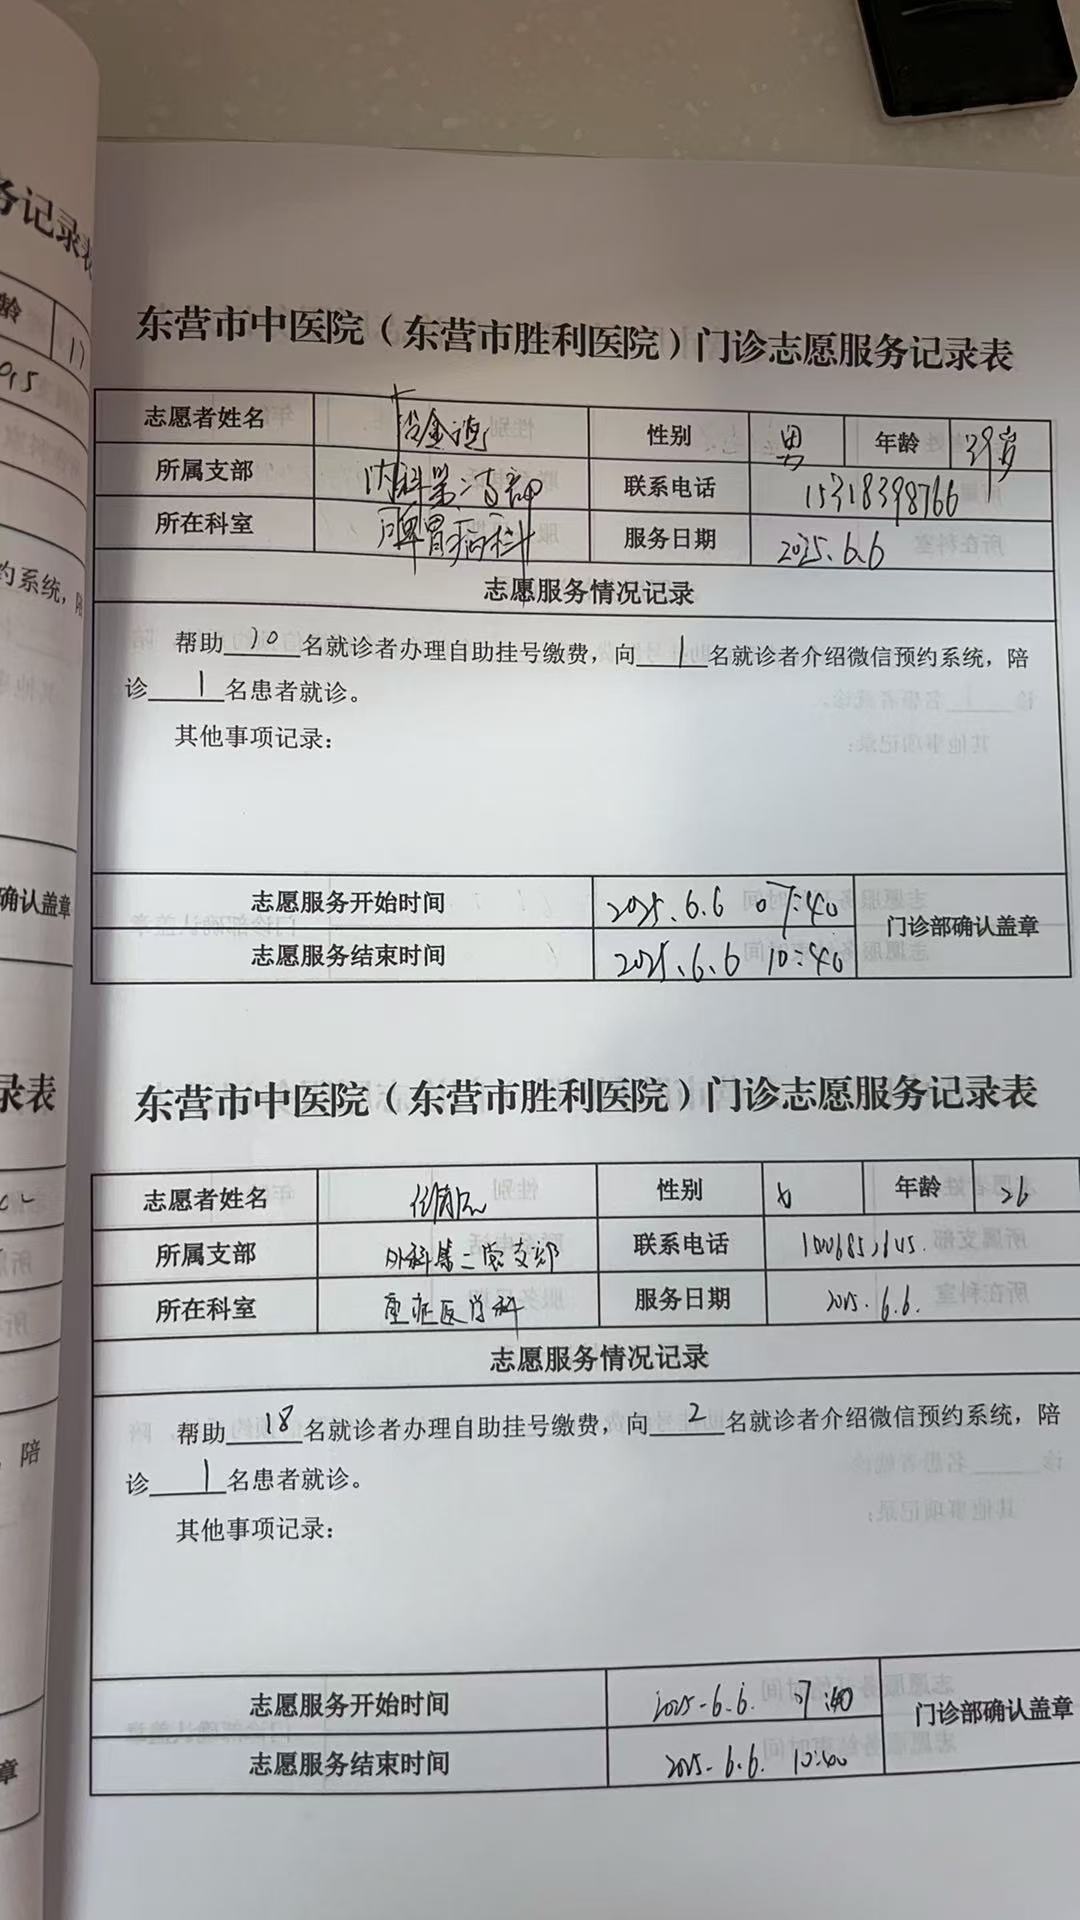 务记录表
龄 17
约系统，陪
确认盖章
录表
陪
章
东营市中医院（东营市胜利医院）门诊志愿服务记录表
志愿者姓名 性别 男 年龄 39岁
所属支部 内科第二支部 联系电话 15318398766
所在科室 脾胃病科 服务日期 2025.6.6
志愿服务情况记录
帮助 20 名就诊者办理自助挂号缴费，向 1 名就诊者介绍微信预约系统，陪
诊 1 名患者就诊。
其他事项记录：
志愿服务开始时间 2025.6.6 07:40
门诊部确认盖章
志愿服务结束时间 2025.6.6 10:40
东营市中医院（东营市胜利医院）门诊志愿服务记录表
志愿者姓名 性别 女 年龄 26
所属支部 外科第二党支部 联系电话
所在科室 重症医学科 服务日期 2025.6.6.
志愿服务情况记录
帮助 18 名就诊者办理自助挂号缴费，向 2 名就诊者介绍微信预约系统，陪
诊 1 名患者就诊。
其他事项记录：
志愿服务开始时间 2025.6.6. 07:40
门诊部确认盖章
志愿服务结束时间 2025.6.6. 10:40